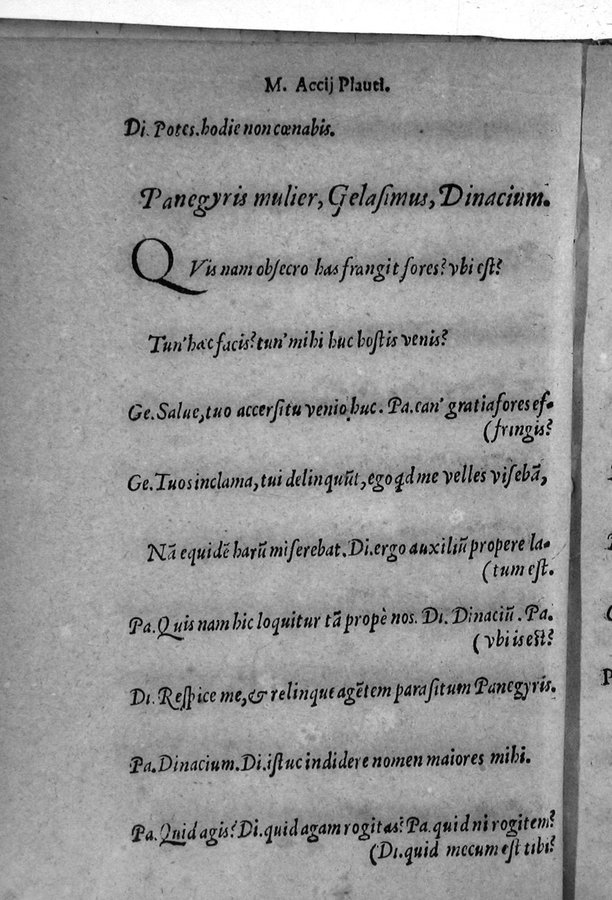 M. Accij Plauti.
Di. Potes. hodie non cœnabis.
Panegyris mulier, Gelasimus, Dinacium.
QVis nam obsecro has frangit fores? vbi est?
Tun' hæc facis? tun' mihi huc hostis venis?
Ge. Salue, tuo accersitu venio huc. Pa. can' gratia fores ef-
(fringis?
Ge. Tuos inclama, tui delinquũt, ego qd me velles visebã,
Nã equidẽ harũ miserebat. Di. ergo auxiliũ propere la-
(tum est.
Pa. Quis nam hic loquitur tã propè nos. Di. Dinaciũ. Pa.
(vbi is est?
Di. Respice me, & relinque agẽtem parasitum Panegyris.
Pa. Dinacium. Di. istuc indidere nomen maiores mihi.
Pa. Quid agis? Di. quid agam rogitas? Pa. quid ni rogitem?
(Di. quid mecum est tibi?